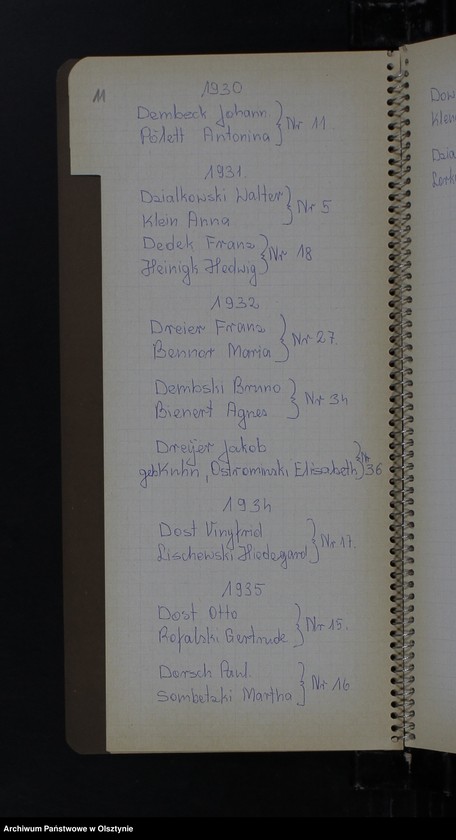 11
1930
Dembeck Johann
Pölett Antonina } Nr 11.
1931.
Dzialkowski Walter
Klein Anna } Nr 5
Dedek Franz
Heinigk Hedwig } Nr 18
1932
Dreier Franz
Bennor Maria } Nr 27.
Dembski Bruno
Bienert Agnes } Nr 34
Dreijer Jakob
geb Kuhn, Ostrominski Elisabeth } Nr 36
1934
Dost Vingfrid
Lischewski Hiedegard } Nr 17.
1935
Dost Otto
Rofalski Gertrude } Nr 15.
Dorsch Paul
Sombetzki Martha } Nr 16
Dow
Klein
Dzia
Lorki
Archiwum Państwowe w Olsztynie